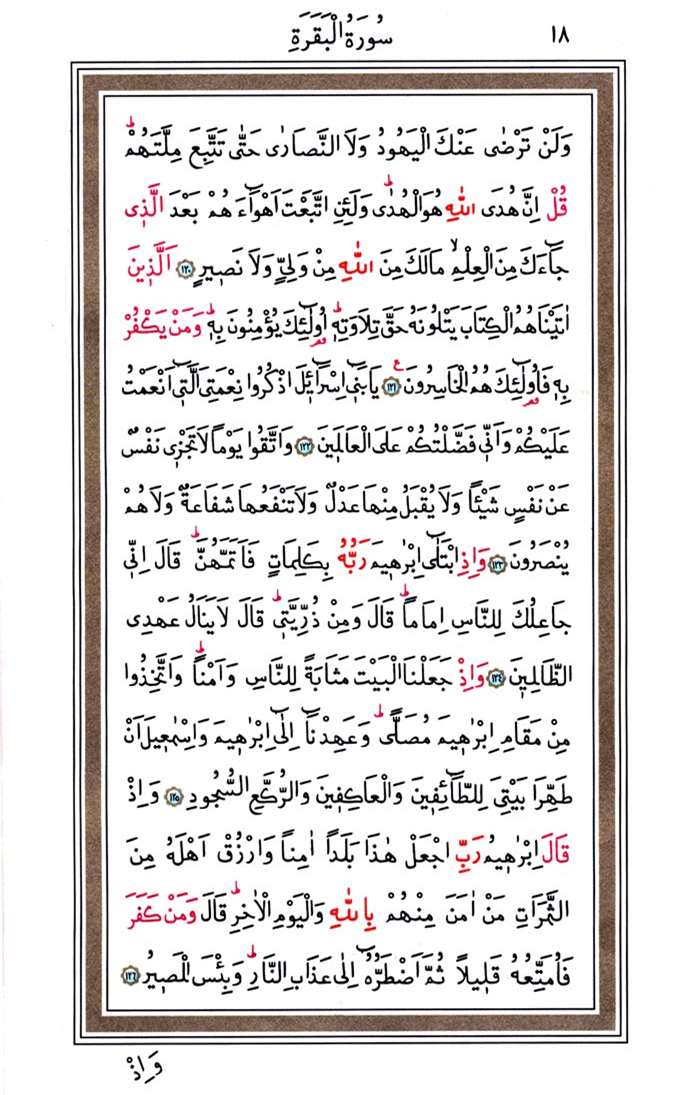 ١٨ سُورَةُ الْبَقَرَةِ
وَلَنْ تَرْضٰى عَنْكَ الْيَهُودُ وَلَا النَّصَارٰى حَتّٰى تَتَّبِعَ مِلَّتَهُمْۜ
قُلْ اِنَّ هُدَى اللّٰهِ هُوَ الْهُدٰىۜ وَلَئِنِ اتَّبَعْتَ اَهْوَٓاءَهُمْ بَعْدَ الَّذ۪ي
جَٓاءَكَ مِنَ الْعِلْمِۙ مَالَكَ مِنَ اللّٰهِ مِنْ وَلِيٍّ وَلَا نَص۪يرٍ ﴿١٢٠﴾ اَلَّذ۪ينَ
اٰتَيْنَاهُمُ الْكِتَابَ يَتْلُونَهُ حَقَّ تِلَاوَتِه۪ۜ اُو۬لٰٓئِكَ يُؤْمِنُونَ بِه۪ۜ وَمَنْ يَكْفُرْ
بِه۪ فَاُو۬لٰٓئِكَ هُمُ الْخَاسِرُونَ۟ ﴿١٢١﴾ يَا بَن۪ٓي اِسْرَٓائ۪لَ اذْكُرُوا نِعْمَتِيَ الَّت۪ٓي اَنْعَمْتُ
عَلَيْكُمْ وَاَنّ۪ي فَضَّلْتُكُمْ عَلَى الْعَالَم۪ينَ ﴿١٢٢﴾ وَاتَّقُوا يَوْماً لَا تَجْز۪ي نَفْسٌ
عَنْ نَفْسٍ شَيْـٔاً وَلَا يُقْبَلُ مِنْهَا عَدْلٌ وَلَا تَنْفَعُهَا شَفَاعَةٌ وَلَا هُمْ
يُنْصَرُونَ ﴿١٢٣﴾ وَاِذِ ابْتَلٰٓى اِبْرٰه۪يمَ رَبُّهُ بِكَلِمَاتٍ فَاَتَمَّهُنَّۜ قَالَ اِنّ۪ي
جَاعِلُكَ لِلنَّاسِ اِمَاماًۜ قَالَ وَمِنْ ذُرِّيَّت۪يۜ قَالَ لَا يَنَالُ عَهْدِي
الظَّالِم۪ينَ ﴿١٢٤﴾ وَاِذْ جَعَلْنَا الْبَيْتَ مَثَابَةً لِلنَّاسِ وَاَمْناًۜ وَاتَّخِذُوا
مِنْ مَقَامِ اِبْرٰه۪يمَ مُصَلًّىۜ وَعَهِدْنَٓا اِلٰٓى اِبْرٰه۪يمَ وَاِسْمٰع۪يلَ اَنْ
طَهِّرَا بَيْتِيَ لِلطَّٓائِف۪ينَ وَالْعَاكِف۪ينَ وَالرُّكَّعِ السُّجُودِ ﴿١٢٥﴾ وَاِذْ
قَالَ اِبْرٰه۪يمُ رَبِّ اجْعَلْ هٰذَا بَلَداً اٰمِناً وَارْزُقْ اَهْلَهُ مِنَ
الثَّمَرَاتِ مَنْ اٰمَنَ مِنْهُمْ بِاللّٰهِ وَالْيَوْمِ الْاٰخِرِۜ قَالَ وَمَنْ كَفَرَ
فَاُمَتِّعُهُ قَل۪يلاً ثُمَّ اَضْطَرُّهُٓ اِلٰى عَذَابِ النَّارِۜ وَبِئْسَ الْمَص۪يرُ ﴿١٢٦﴾
وَاِذْ